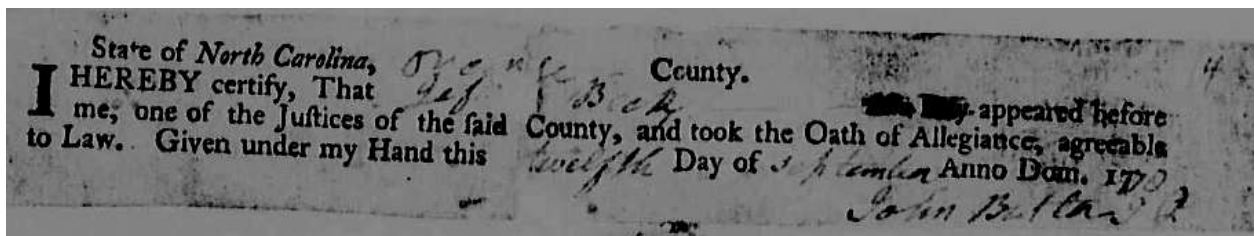 State of North Carolina, Orange County. 4
I HEREBY certify, That appeared before
me, one of the Juſtices of the ſaid County, and took the Oath of Allegiance, agreeable
to Law. Given under my Hand this twelfth Day of September Anno Dom. 177
John Butler